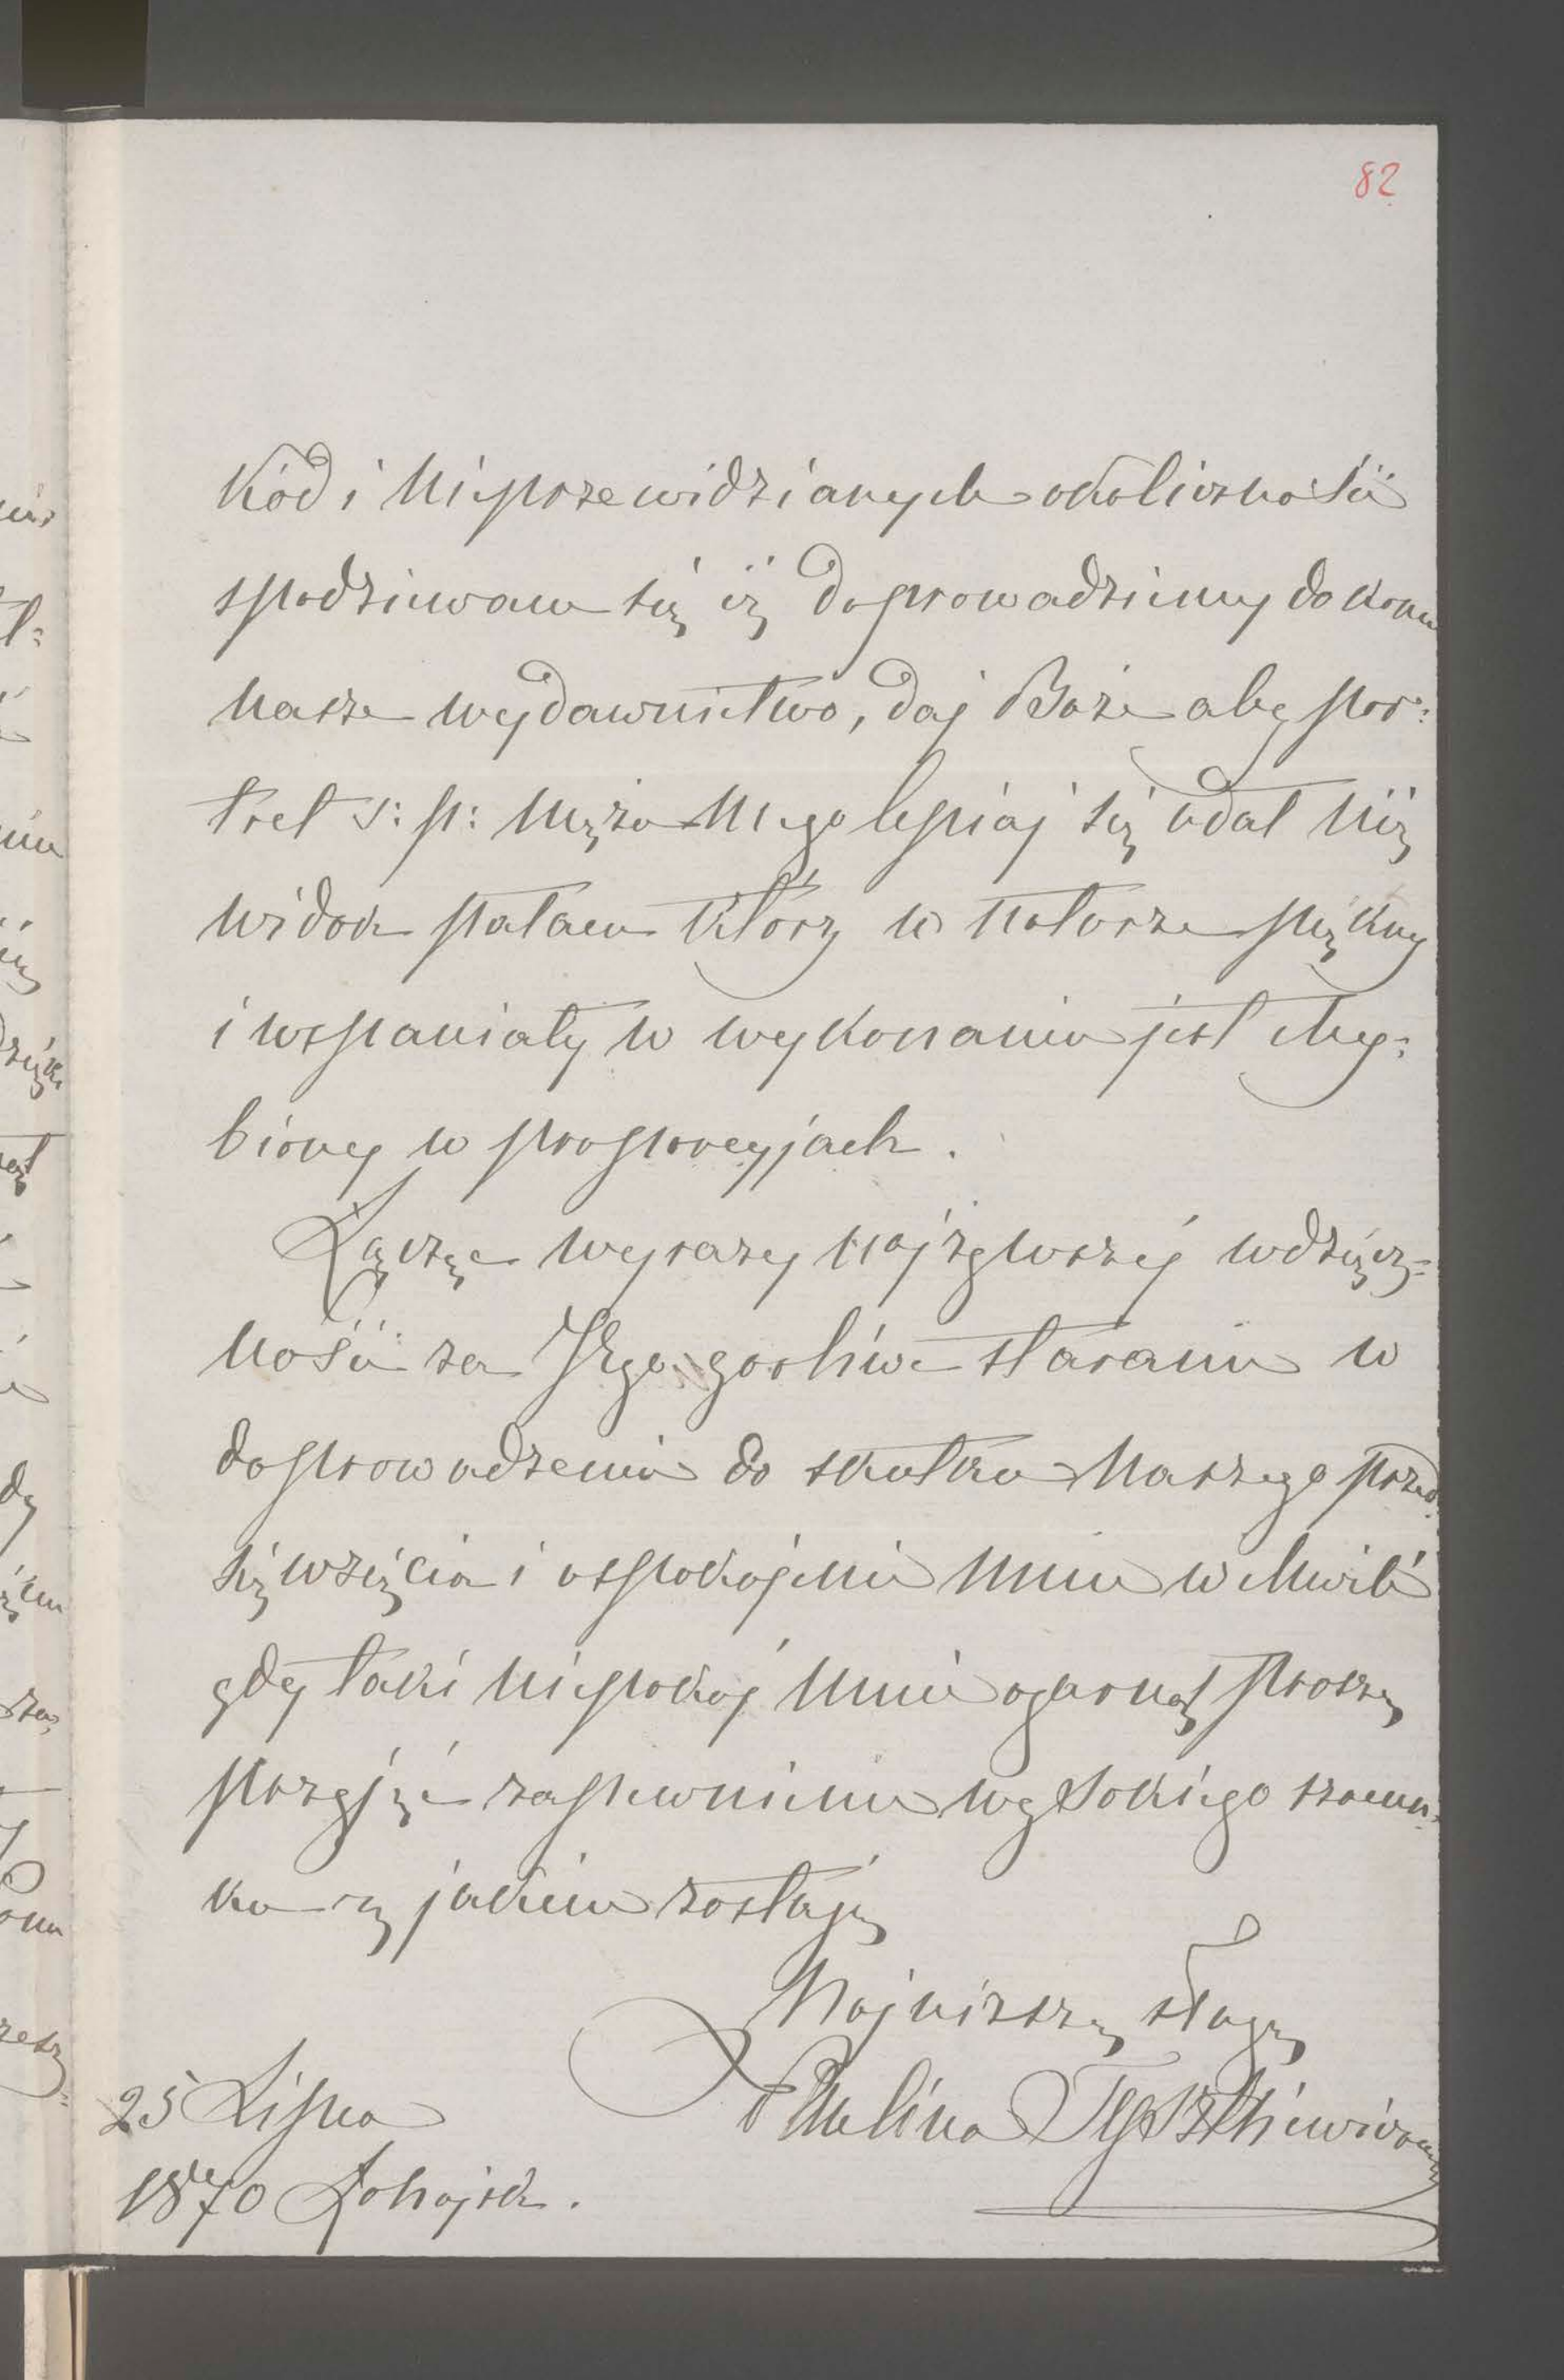 82
kód i nieprzewidzianych okoliczności
spodziewam się iż doprowadziemy do końca
nasze wydawnictwo, daj Boże aby por:
tret ś: p: męża mego lepiej się udał niż
widok pałacu który w naturze piękny
i wspaniały w wykonaniu jest chy:
biony w proporcyjach.
Łączę wyrazy najżywszéj wdzięcz=
ności za Jego gorliwe staranie w
doprowadzeniu do skutku naszego przed:
sięwzięcia i uspokojenie mnie w chwili
gdy taki niepokój mnie ogarnął proszę
przyjąć zapewnienie wysokiego szacun:
ku z jakiem zostaję
Najniższą sługą
Paulina Tyszkiewiczowa
25 Lipca
1870 Łohojsk.